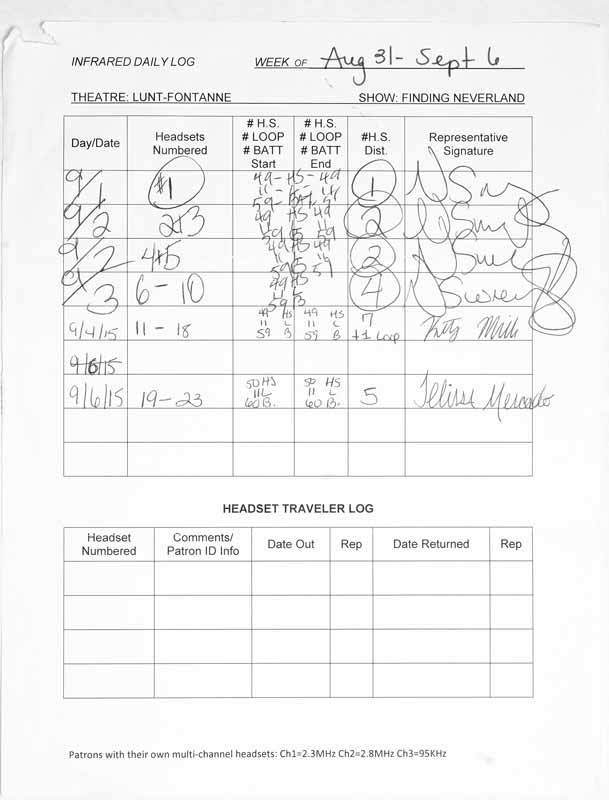 INFRARED DAILY LOG WEEK OF Aug 31 - Sept 6
THEATRE: LUNT-FONTANNE SHOW: FINDING NEVERLAND
Day/Date Headsets Numbered # H.S. # LOOP # BATT Start # H.S. # LOOP # BATT End #H.S. Dist. Representative Signature
9/1 #1 49 - HS - 49 11 - L - 11 59 - BAT - 59 1
9/2 2+3 49 HS 49 59 B 59 2
9/2 4+5 49 HS 49 59 B 59 2
9/3 6 - 10 49 HS 59 B 4
9/4/15 11 - 18 49 HS 11 L 59 B 49 HS 11 L 59 B 7 +1 Loop
9/6/15
9/6/15 19 - 23 50 HS 11 L 60 B. 50 HS 11 L 60 B. 5 Mercado
HEADSET TRAVELER LOG
Headset Numbered Comments/ Patron ID Info Date Out Rep Date Returned Rep
Patrons with their own multi-channel headsets: Ch1=2.3MHz Ch2=2.8MHz Ch3=95KHz